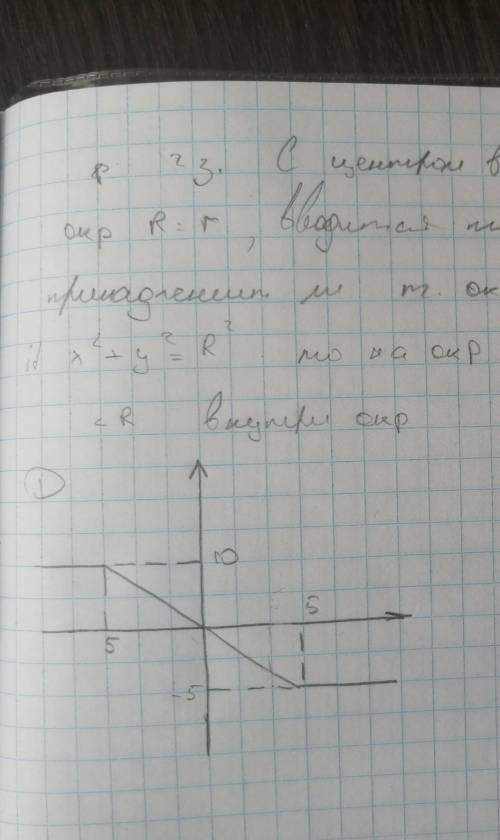 23. С центром в
окр R = r, вводится
принадлежит ли т. ок
if x² + y² = R² то на окр
< R внутри окр
1
10
5
5
-5